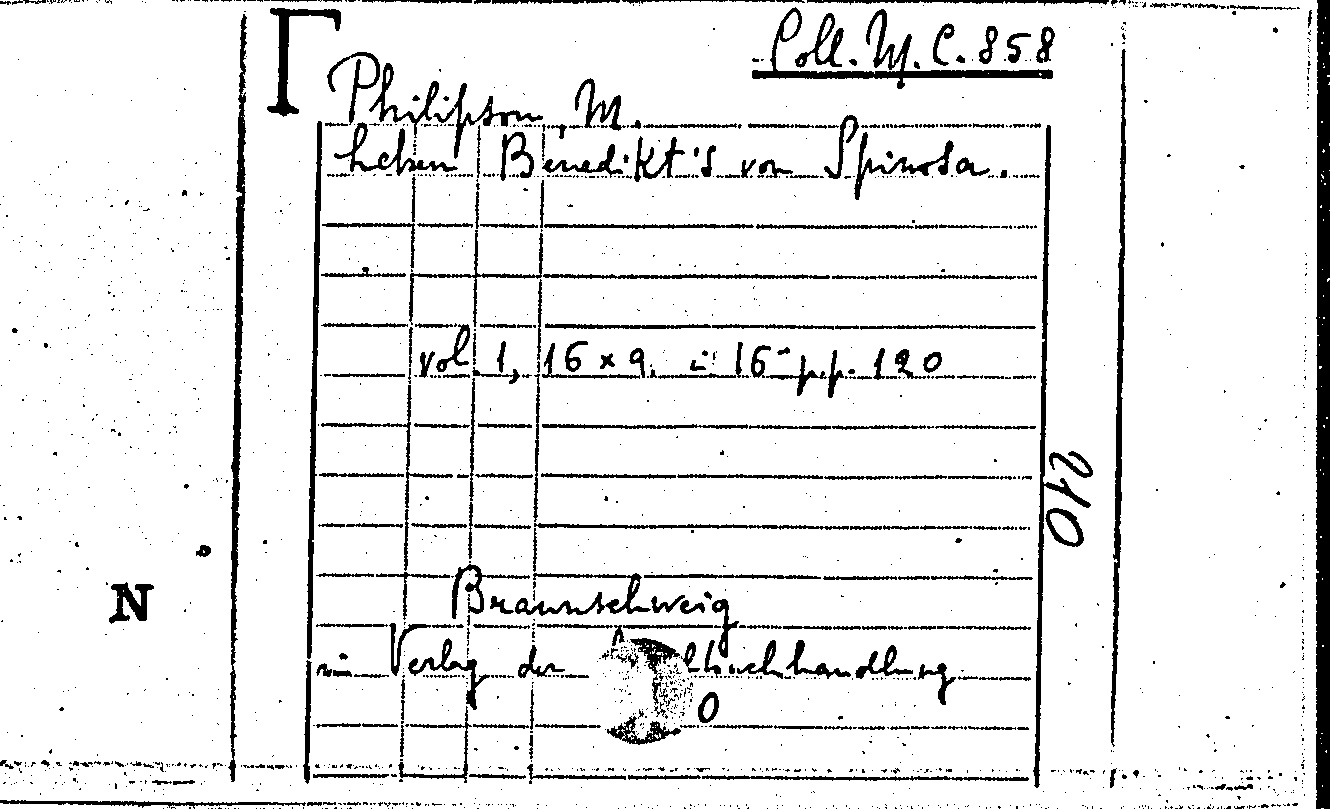 Coll. M. C. 858
Philipson, M.
Leben Benedikt's von Spinosa.
vol. 1, 16 x 9. in 16° pp. 120
210
Braunschweig
N
im Verlag der
0